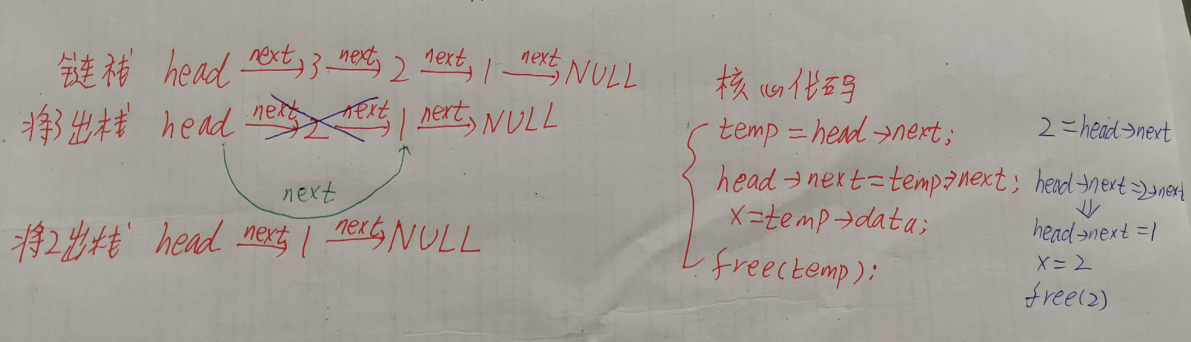 链栈 head next→ 3 next→ 2 next→ 1 next→ NULL
将3出栈 head next→ 2 next→ 1 next→ NULL
next
将2出栈 head next→ 1 next→ NULL
核心代码
temp = head→next;
head→next = temp→next;
x = temp→data;
free(temp);
2 = head→next
head→next = 2→next
⇓
head→next = 1
x = 2
free(2)